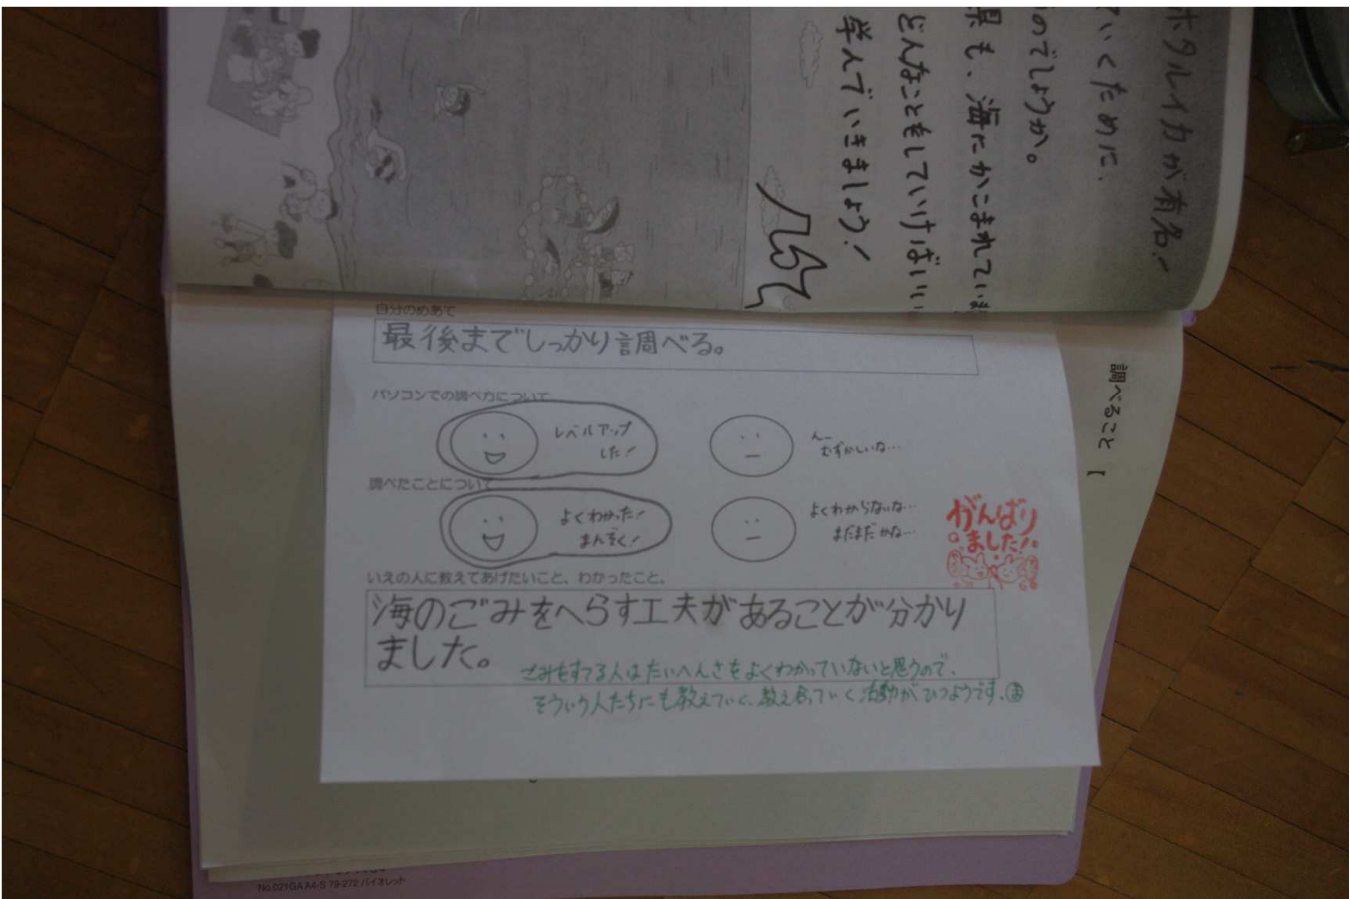 ホタルイカが有名!
いくために、
のでしょうか。
県も、海にかこまれてい
どんなことをしていけばいい
学んでいきましょう!
調べること【
自分のめあて
最後までしっかり調べる。
パソコンでの調べ方について
レベルアップ
した!
んー
むずかしいな…
調べたことについて
よくわかった!
まんぞく!
よくわからないな…
まだまだかな…
がんばり
ました!
いえの人に教えてあげたいこと、わかったこと。
海のごみをへらす工夫があることが分かり
ました。
ごみをすてる人はたいへんさをよくわかっていないと思うので、
そういう人たちにも教えていく、教え合っていく活動がひつようです。
No.021GA A4-S 79-272 バイオレット